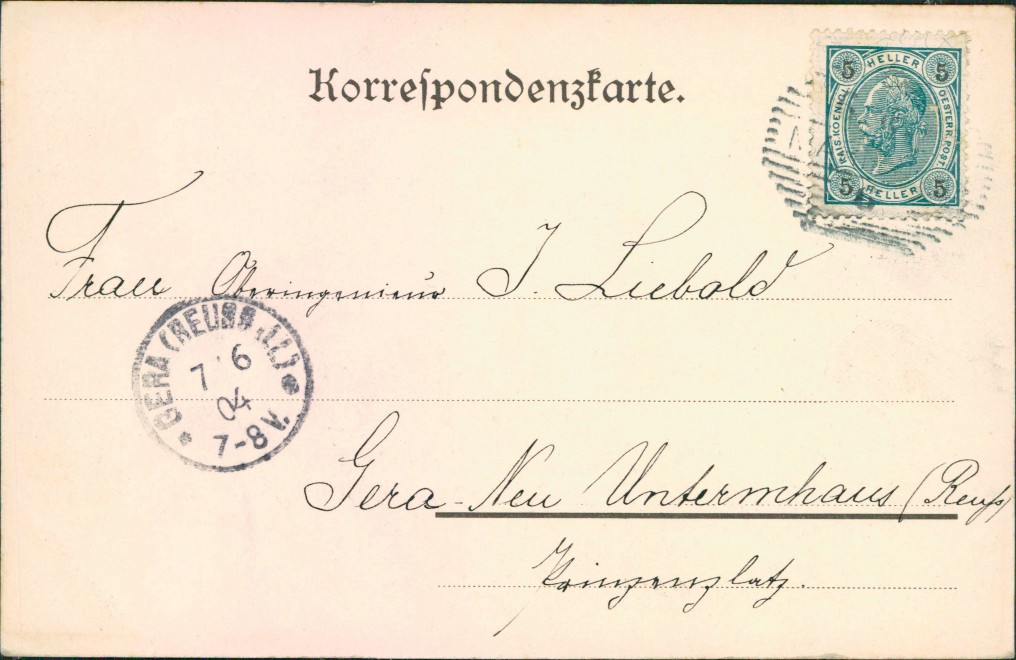 Korrespondenzkarte.
5 HELLER 5
KAIS. KOENIGL. OESTERR. POST.
5 HELLER 5
Frau Oberingenieur J. Liebold
GERA (REUSS j.L.)
7 6
04
7-8 V.
Gera-Neu Untermhaus (Reuß)
Prinzenplatz.